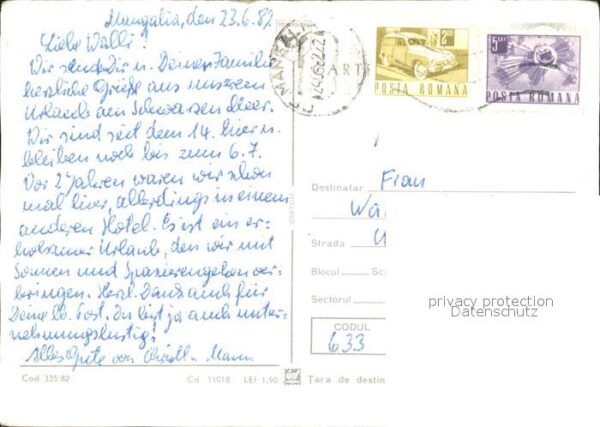 Mangalia, den 23.6.82
Liebe Walli!
Wir senden Dir u. Deiner Familie
herzliche Grüße aus unserem
Urlaub am Schwarzen Meer.
Wir sind seit dem 14. hier u.
bleiben noch bis zum 6.7.
Vor 2 Jahren waren wir schon
mal hier, allerdings in einem
anderen Hotel. Es ist ein er-
holsamer Urlaub, den wir mit
Sonnen und Spazierengehen ver-
bringen. Herzl. Dank auch für
Deine lb. Post. Du bist ja auch unter-
nehmungslustig!
Alles Gute von u. Mann
Cod 335/82
Cd 11018 LEI 1,50
ART
2 LEI
POSTA ROMANA
5 LEI
POSTA ROMANA
Destinatar Frau
Wa
Strada
Blocul Sc
Sectorul
CODUL
633
Țara de destin
privacy protection
Datenschutz